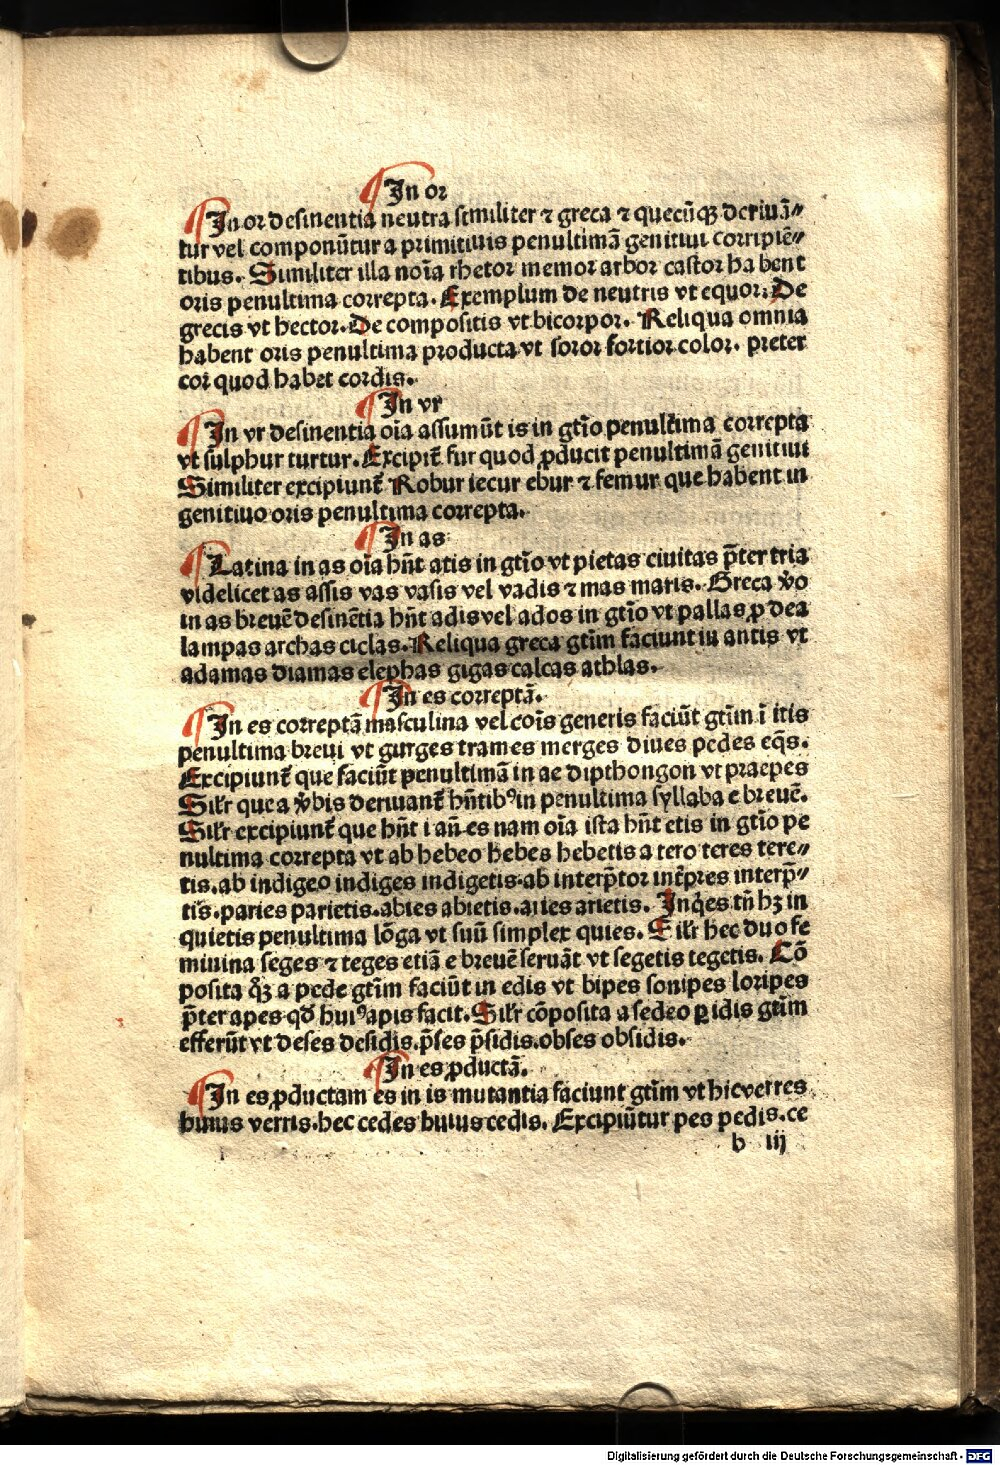 ¶ In or
¶ In or desinentia neutra similiter ⁊ greca ⁊ quecūqꝫ deriuā⸗
tur vel componūtur a primitiuis penultimā genitiui corripiē⸗
tibus. Similiter illa noīa rhetor memor arbor castor habent
oris penultima correpta. Exemplum de neutris vt equor. De
grecis vt hector. De compositis vt bicorpor. Reliqua omnia
habent oris penultima producta vt soror fortior color. preter
cor quod habet cordis.
¶ In vr
¶ In vr desinentia oīa assumūt is in gtīo penultima correpta
vt sulphur turtur. Excipiūt̄ fur quod ꝓducit penultimā genitiui
Similiter excipiunt̄ Robur iecur ebur ⁊ femur que habent in
genitiuo oris penultima correpta.
¶ In as
¶ Latina in as oīa hn̄t atis in gtīo vt pietas ciuitas p̄ter tria
videlicet as assis vas vasis vel vadis ⁊ mas maris. Greca v̄o
in as breuē desinētia hn̄t adis vel ados in gtīo vt pallas ꝓ dea
lampas archas ciclas. Reliqua greca gtīm faciunt in antis vt
adamas diamas elephas gigas calcas athlas.
¶ In es correptā.
¶ In es correptā masculina vel cōis generis faciūt gtīm ī itis
penultima breui vt gurges trames merges diues pedes eq̄s.
Excipiunt̄ que faciūt penultimā in ae dipthongon vt praepes
Sil'r que a v̄bis deriuant̄ hn̄tibꝰ in penultima syllaba e breuē.
Sil'r excipiunt̄ que hn̄t i an̄ es nam oīa ista hn̄t etis in gtīo pe
nultima correpta vt ab hebeo hebes hebetis a tero teres tere⸗
tis. ab indigeo indiges indigetis. ab interp̄tor int̄pres interp̄⸗
tis. paries parietis. abies abietis. aries arietis. Inq̄es tn̄ hꝫ in
quietis penultima lōga vt suū simplex quies. Sil'r hec duo fe
minina seges ⁊ teges etiā e breuē seruāt vt segetis tegetis. Cō
posita q̄ꝫ a pede gtīm faciūt in edis vt bipes sonipes loripes
p̄ter apes qd̄ huiꝰ apis facit. Sil'r cōposita a sedeo ꝑ idis gtīm
efferūt vt deses desidis. p̄ses p̄sidis. obses obsidis.
¶ In es ꝓductā.
¶ In es ꝓductam es in is mutantia faciunt gtīm vt hic verres
huius verris. hec cedes huius cedis. Excipiūtur pes pedis. ce
b iij
Digitalisierung gefördert durch die Deutsche Forschungsgemeinschaft - DFG